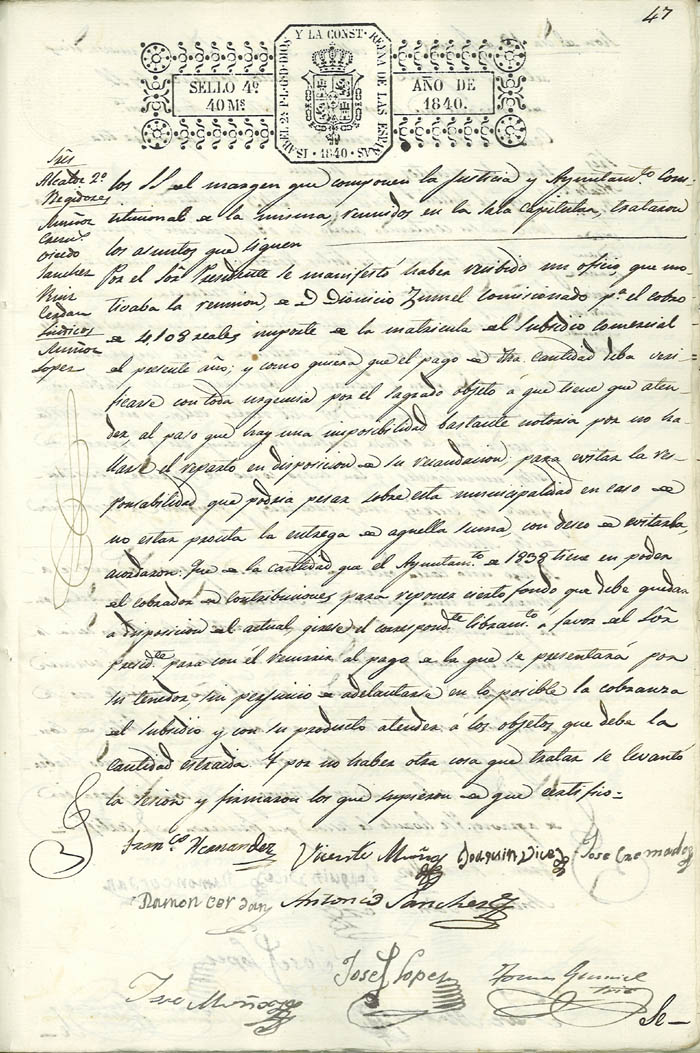 47
ISABEL 2ª P.L.G.D.DIOS Y LA CONST. REYNA DE LAS ESPAÑAS
· 1840 ·
SELLO 4º
40 Mˢ
AÑO DE
1840.
Sres
Alcalde 2º
Regidores
Muñoz
Crem.º
Oviedo
Sanchez
Ruiz
Cerdan
Sindicos
Muñoz
Lopez
los SS del margen que componen la Justicia y Ayuntam.to Cons-
titucional de la misma, reunidos en la sala Capitular, trataron
los asuntos que siguen
Por el Sor Presidente se manifestó haber recibido un oficio que mo-
tivaba la reunion, de D Dionicio Zumel comisionado pª el cobro
de 4108 reales importe de la matricula del subsidio comercial
el presente año; y como quiera que el pago de dha cantidad deba veri-
ficarse con toda urgencia por el sagrado objeto á que tiene que aten-
der, al paso que hay una imposibilidad bastante notoria por no ha-
llarse el reparto en disposicion de su recaudacion, para evitar la res-
ponsabilidad que podria pesar sobre esta municipalidad en caso de
no estar pronta la entrega de aquella suma, con deseo de evitarla,
acordaron: Que de la cantidad que el Ayuntam.to de 1838 tiene en poder
del cobrador de contribuciones para reponer cierto fondo que debe quedar
a disposicion del actual, girese el correspond.te libram.to a favor del Sor
Presid.te para con él reunir al pago de la que se presentará por
su tenedor, sin perjuicio de adelantarse en lo posible la cobranza
del subsidio y con su producto atender á los objetos que debe la
cantidad estraida. Y por no haber otra cosa que tratar se levantó
la sesion y firmaron los que supieron de que certifico=
Fran.co Hernandez
Vicente Muñoz
Joaquin Dicez
Jose Cremades
Ramon Cerdan
Antonio Sanchez
Jose Muñoz
Josef Lopez
Se-